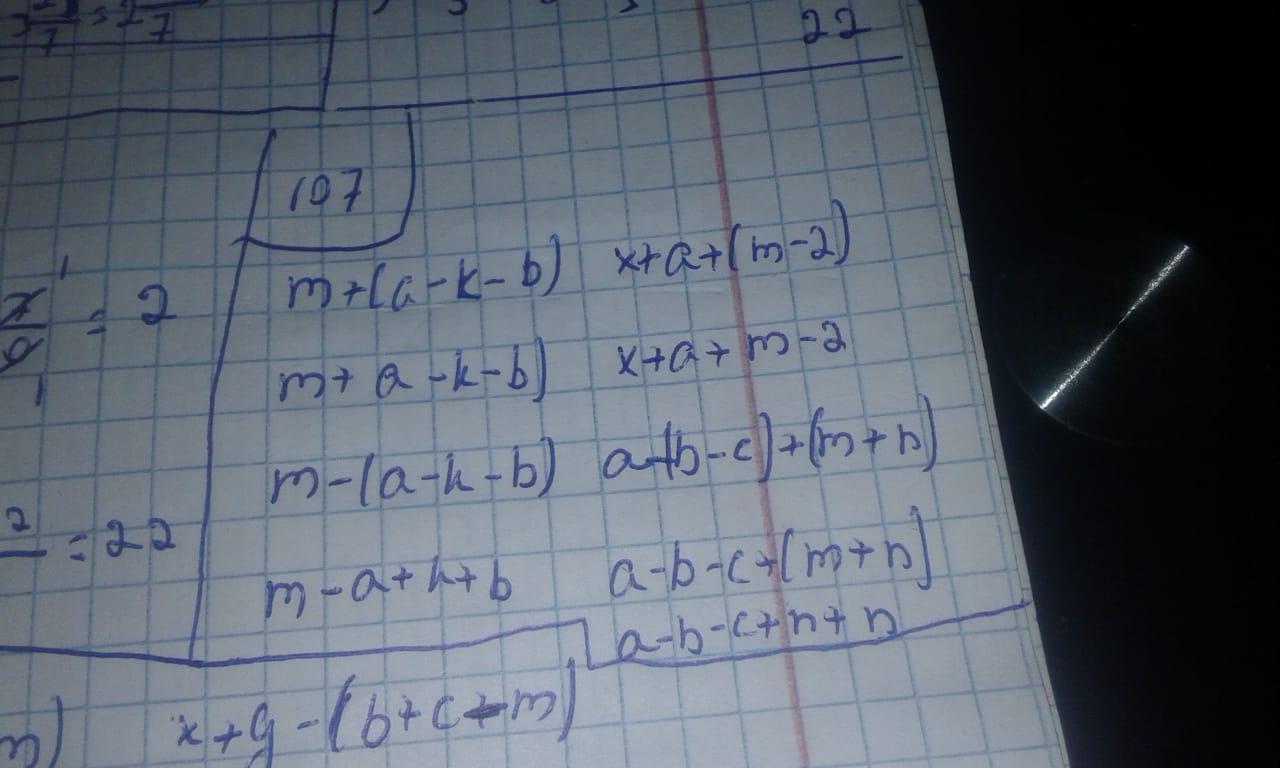 22
107
m+(a-k-b) x+a+(m-2)
m+ a-k-b) x+a+m-2
m-(a-k-b) a-(b-c)+(m+n)
m-a+k+b a-b-c+(m+n)
a-b-c+n+n
= 2
2 = 22
m) x+y-(b+c+m)